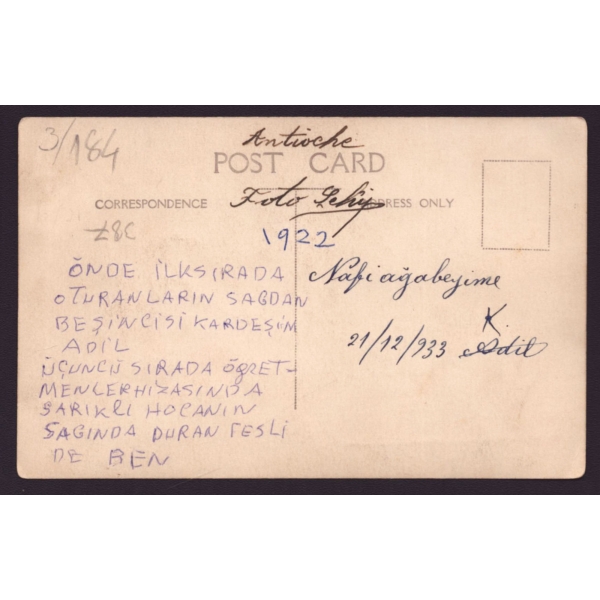 3/184
Antioche
POST CARD
CORRESPONDENCE
ADDRESS ONLY
Foto
1922
ÖNDE İLKSIRADA
OTURANLARIN SAĞDAN
BEŞİNCİSİ KARDEŞİM
ADİL
ÜÇUNCÜ SIRADA ÖĞRET-
MENLERHİZASINDA
SARIKLI HOCANIN
SAĞINDA DURAN FESLİ
DE BEN
Nafi ağabeyime
K.
21/12/933 Adil